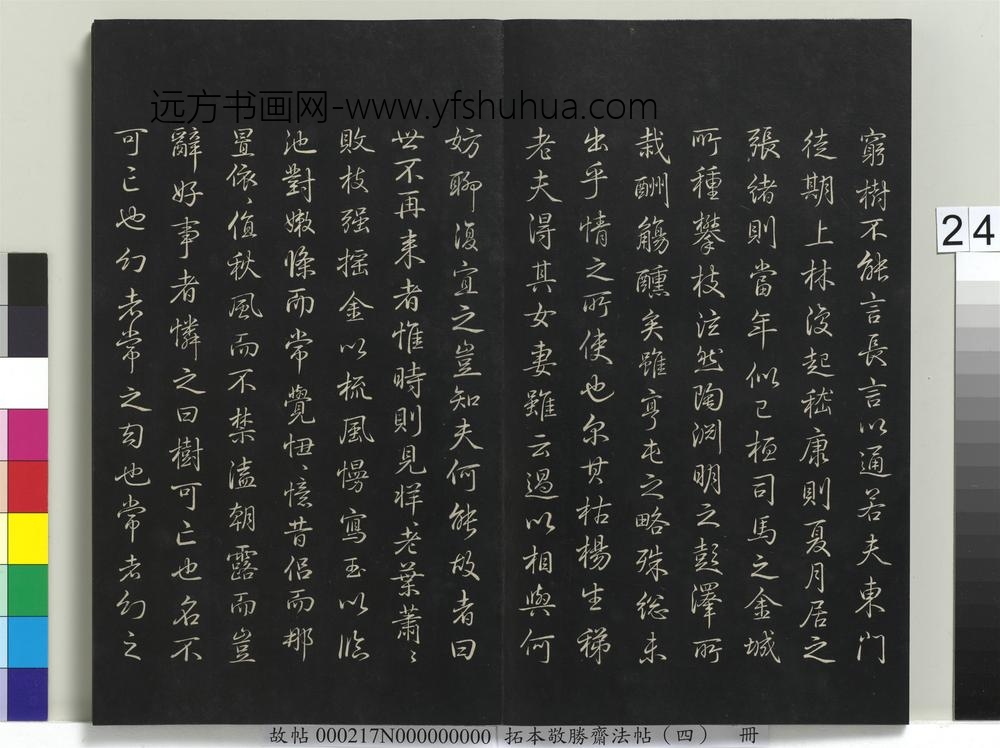 远方书画网-www.yfshuhua.com
窮樹不能言長言以通若夫東門
徒期上林沒起嵇康則夏月居之
張緒則當年似已桓司馬之金城
所種攀枝泫然陶淵明之彭澤所
栽酬觴醺矣雖亨屯之略殊總未
出乎情之所使也尔其枯楊生稊
老夫得其女妻雖云過以相與何
妨聊復宜之豈知夫何能故者曰
世不再来者惟時則見牂老葉蕭〻
敗枝强搖金以梳風慢寫玉以臨
池對嫩條而常覺忸〻憶昔侶而那
置依〻值秋風而不禁溘朝露而豈
辭好事者憐之曰樹可亡也名不
可亡也幻者常之匄也常者幻之
24
故帖 000217N000000000 拓本敬勝齋法帖（四） 冊